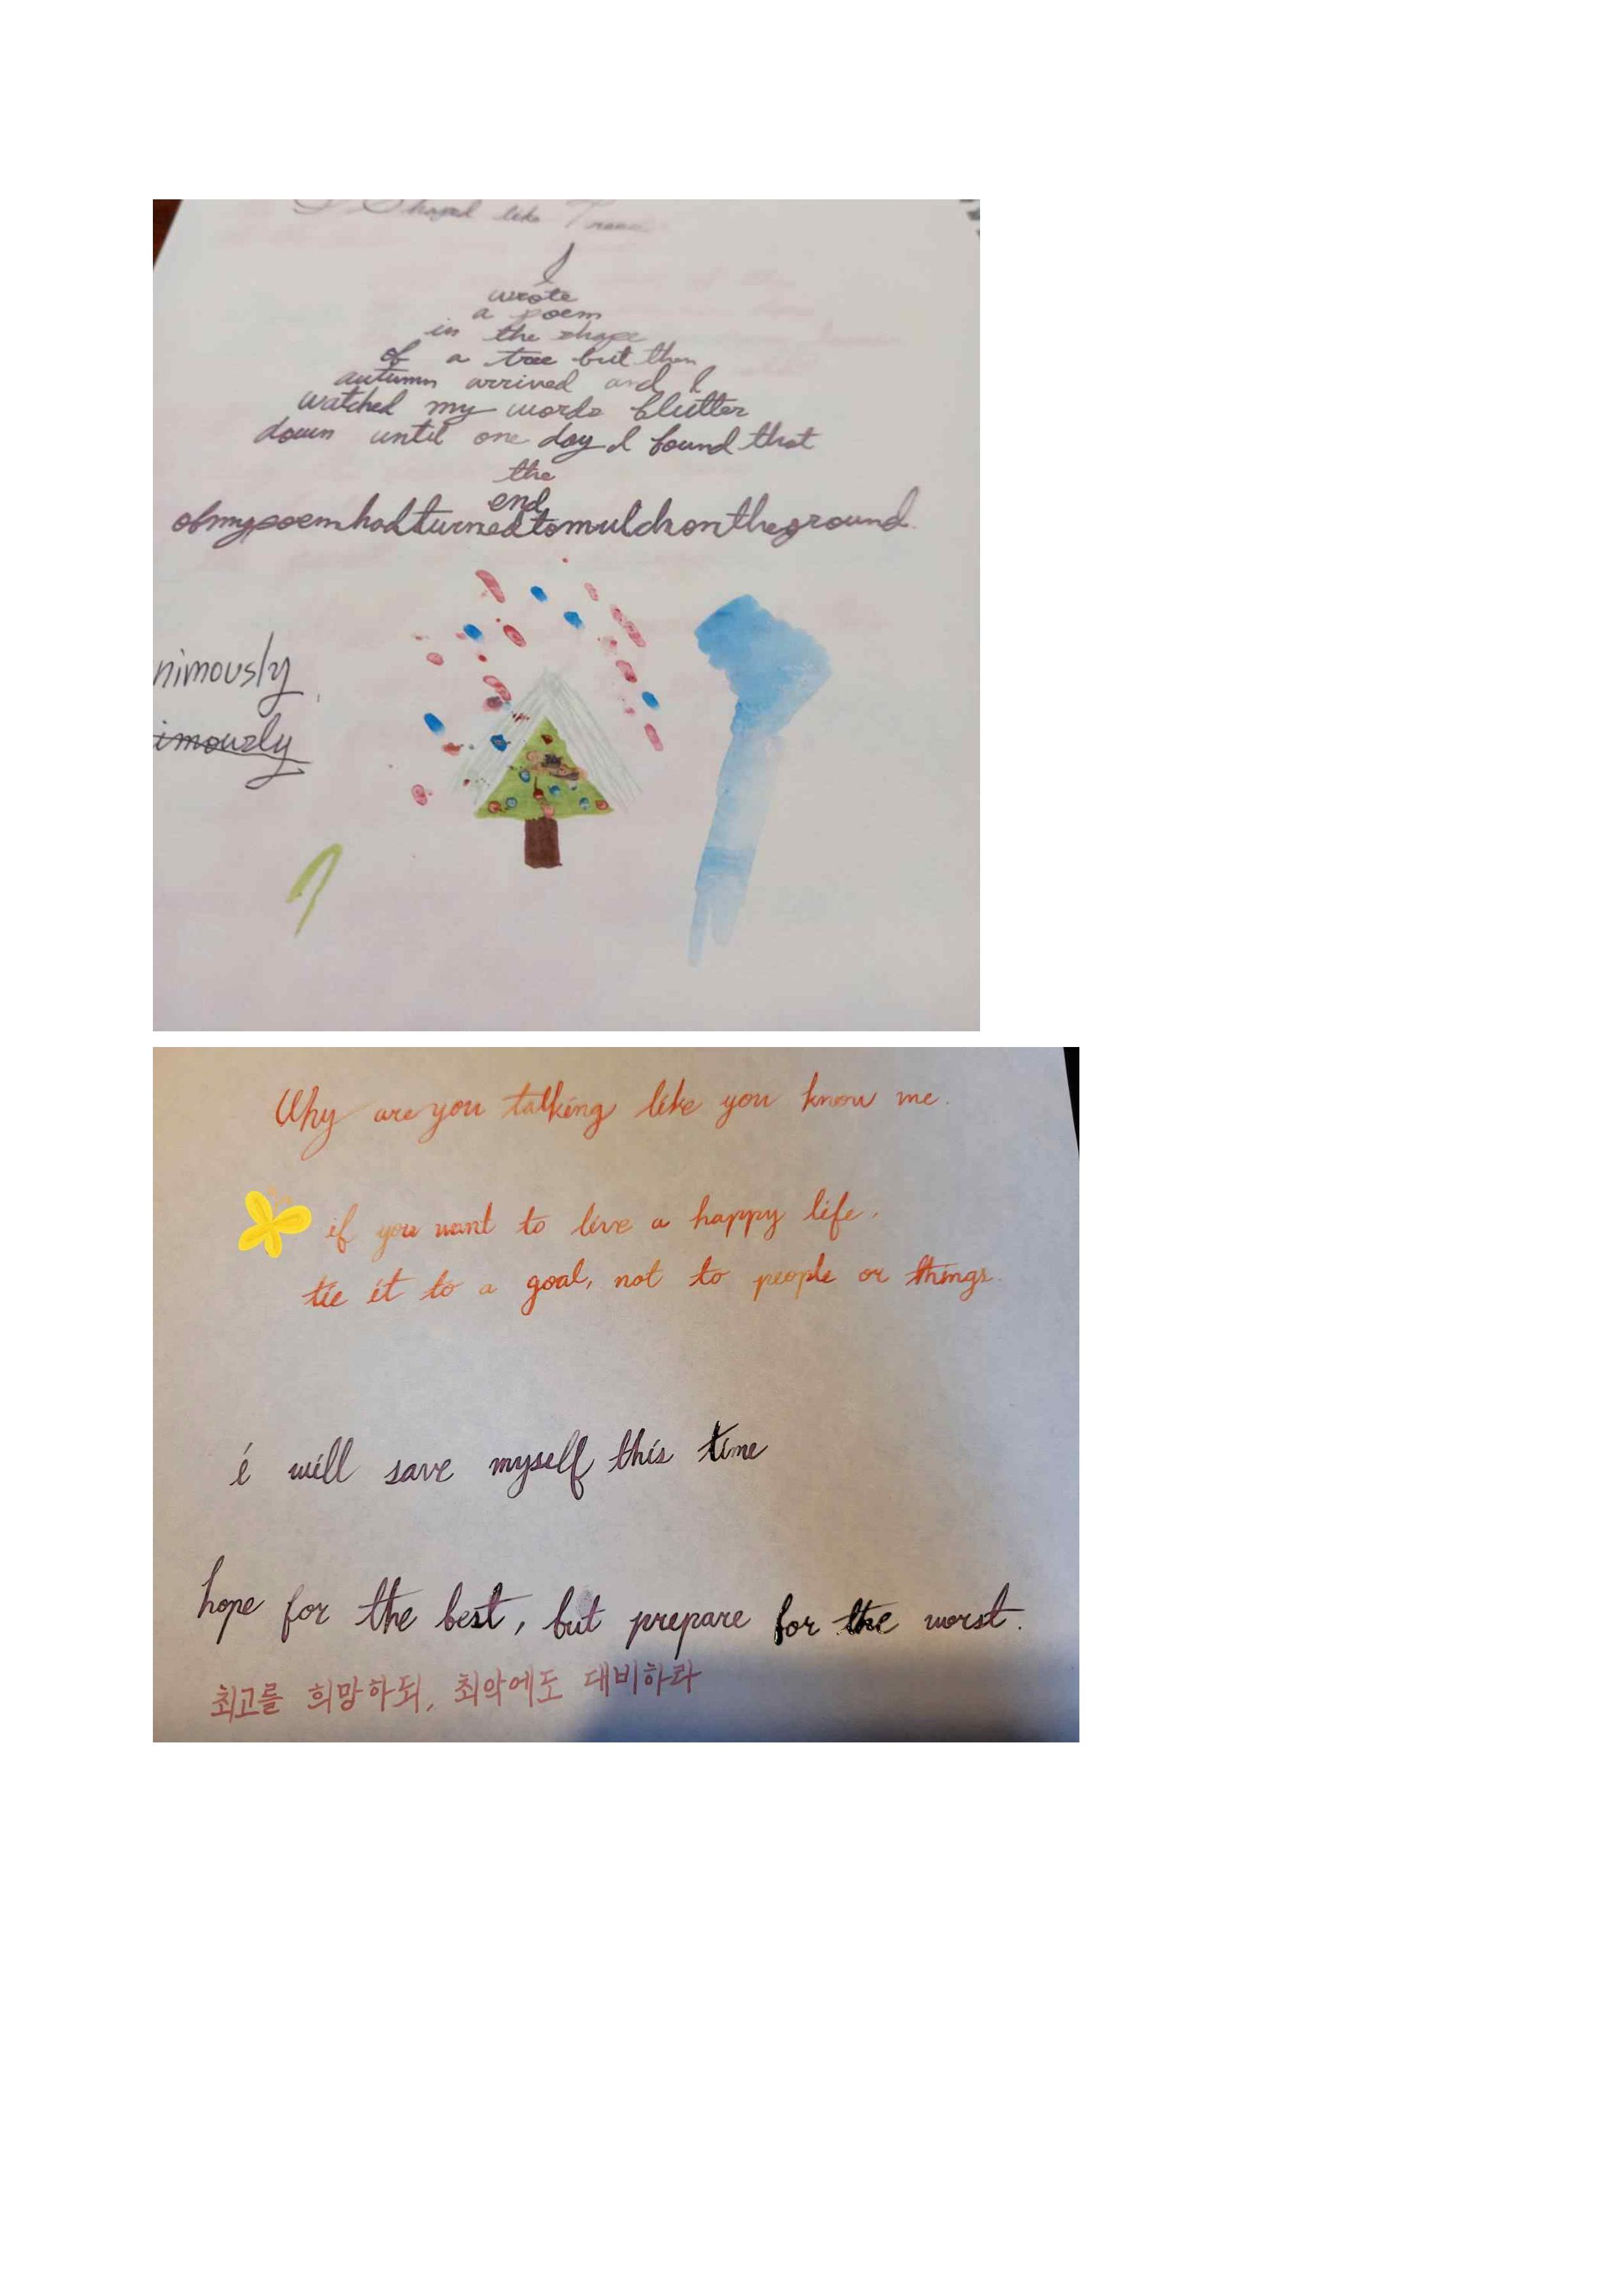 Shaped like Trees
I
wrote
a poem
in the shape
of a tree but then
autumn arrived and I
watched my words flutter
down until one day I found that
the
end
ofmypoemhadturnedtomulchontheground.
nimously
imously
Why are you talking like you know me.
if you want to live a happy life,
tie it to a goal, not to people or things.
i will save myself this time
hope for the best, but prepare for the worst.
최고를 희망하되, 최악에도 대비하라